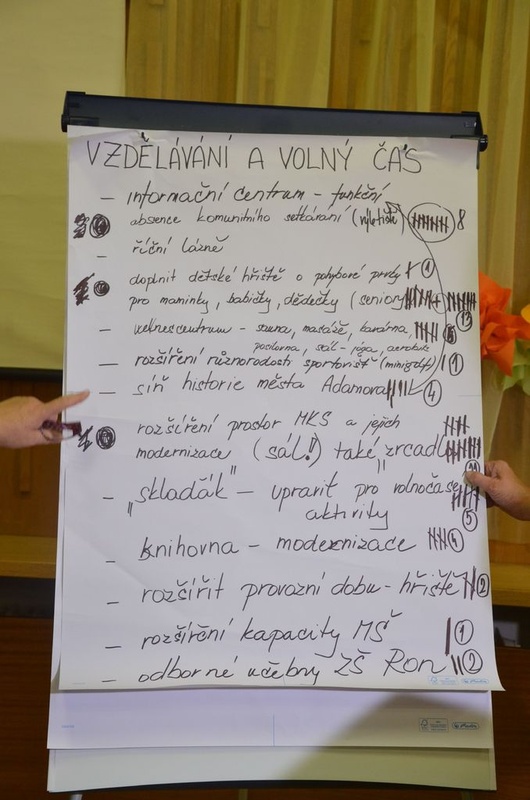 VZDĚLÁVÁNÍ A VOLNÝ ČAS
– informační centrum – funkční
absence komunitního setkávání (výletiště) 8
– říční lázně
doplnit dětské hřiště o pohybové prvky 1
pro maminky, babičky, dědečky (seniory)
– wellnescentrum – sauna, masáže, kavárna,
posilovna, sál – jóga, aerobik
– rozšíření různorodosti sportovišť (minigolf) 1
– síň historie města Adamova 4
rozšíření prostor MKS a jejich
modernizace (sál!) také zrcadl
– "skladák" – upravit pro volnočas
aktivity 5
– knihovna – modernizace 4
– rozšířit provozní dobu – hřiště 2
– rozšíření kapacity MŠ 1
– odborné učebny ZŠ Ron 2